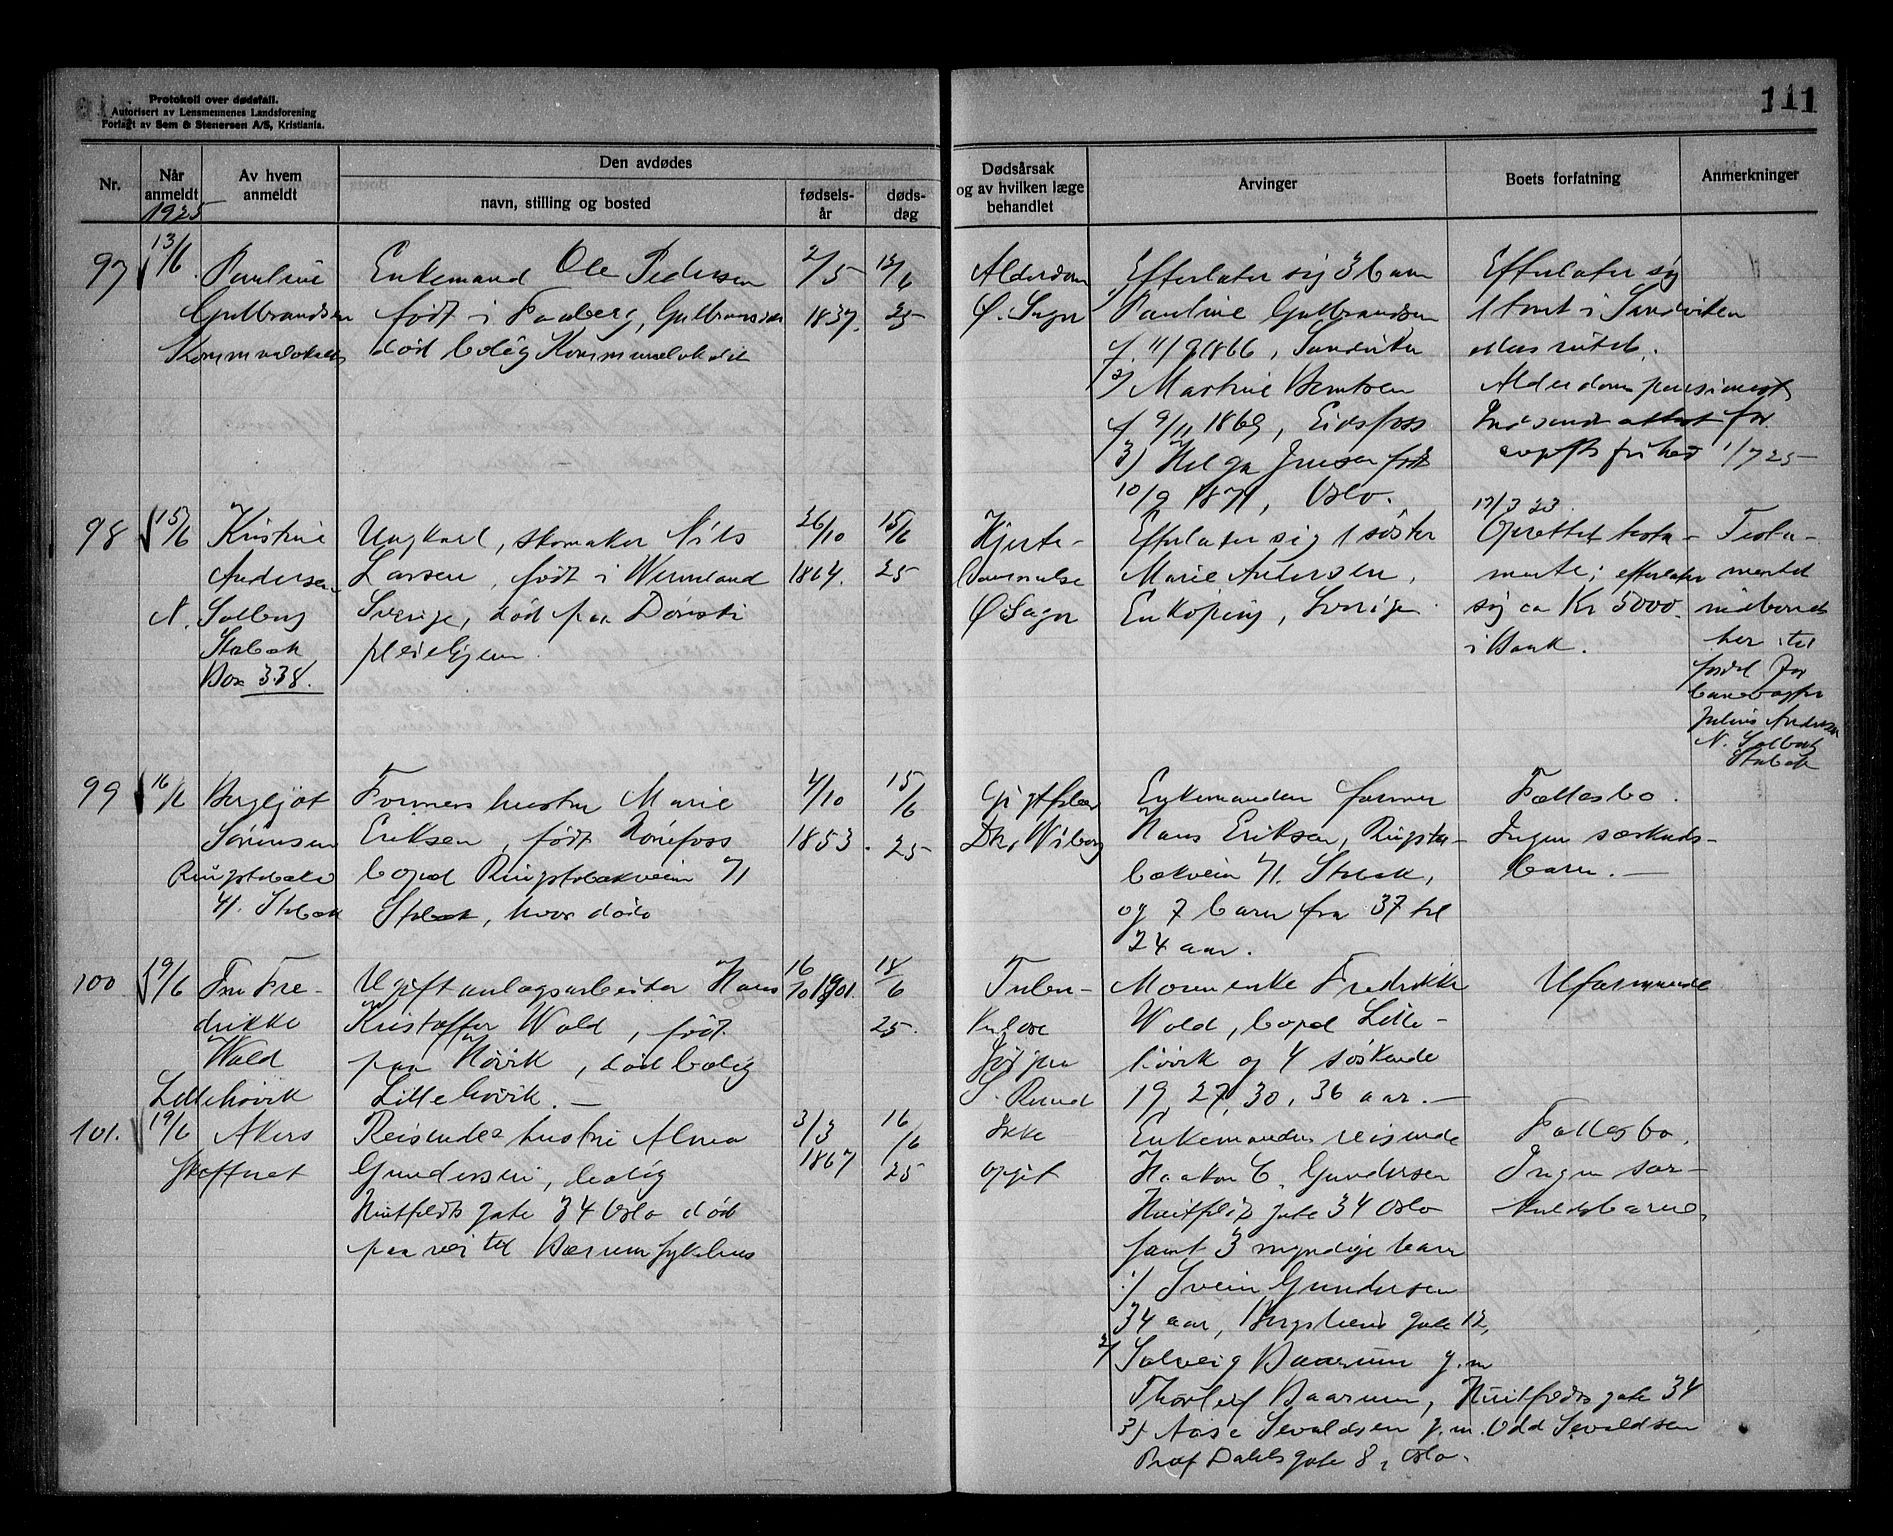 Protokoll over dødsfall.
Autorisert av Lensmennenes Landsforening
Forlagt av Sem & Stenersen A/S, Kristiania.
111
Nr.
Når anmeldt
1925
Av hvem anmeldt
Den avdødes
navn, stilling og bosted
fødsels-år
døds-dag
Dødsårsak og av hvilken læge behandlet
Arvinger
Boets forfatning
Anmerkninger
97
13/6
Pauline
Gulbrandsen
Kommunelokalet
Enkemand Ole Pedersen
født i Faaberg, Gulbransdal
død bolig Kommunelokalet
2/5
1837.
12/6
25
Alderdom
Ø. Sagen
Efterlater sig 3 barn
1/ Pauline Gulbrandsen
f. 11/9 1866, Sandviken
2/ Martine Berntsen
f 9/11 1869, Eidsfoss
3) Helga Jensen født
10/9 1871, Oslo.
Efterlater sig
1 tomt i Sandviken
Alderdoms pensionert
Indsendt attest for
avgiftsfrihed 1/7 25
98
15/6
Kristine
Andersen
N. Solberg
Stabæk
Box 338.
Ungkarl, skomaker Nils
Larsen, født i Wermland
Sverige, død paa Dønski
pleiehjem.
26/10
1864.
15/6
25
Hjerte-
lammelse
Ø Sagen
Efterlater sig 1 søster
Marie Andersen,
Enköping, Sverige.
17/3 23.
Oprettet testa-
mente; efterlater
sig ca Kr 5000.
i Bank.
Testa-
mentet
her til
Julius Andersen
N. Solberg
Stabæk
99
16/6
Bergljot
Sørensen
Ringstabækv
41. Stabæk
Formers hustru Marie
Eriksen, født Hönefoss
bopæl Ringstabækveien 71
Stabæk, hvor døde
4/10
1853.
15/6
25
Gigtfeber
Dr. Wiborg
Enkemanden former
Hans Eriksen, Ringsta-
bækveien 71. Stabæk,
og 7 barn fra 37 til
24 aar.
Fællesbo.
Ingen særkuds-
barn.
100
19/6
Fru Fre-
drikke
Wold
Lillehøvik
Ugift anlægsarbeider Hans
Kristoffer Wold, født
paa Høvik, død bolig
Lillehøvik.
16/10 1901.
18/6
25.
Tuber-
kulose
S. Ruud
Moren enke Fredrikke
Wold, bopæl Lille-
høvik og 4 søskende
19, 27, 30, 36 aar.
Uformuende
101.
19/6
Akers
skifteret
Reisendes hustru Alma
Gundersen, bolig
Huitfeldts gate 34 Oslo død
paa vei til Bærum sykehus
3/3
1867
16/6
25
Ikke
opgit
Enkemanden reisende
Haakon C. Gundersen
Huitfeldts gate 34 Oslo
samt 3 myndige barn
1) Svein Gundersen
34 aar, Bergsliens gate 12,
2/ Solveig Baarum g.m
Thorleif Baarum, Huitfeldts gate 34
3) Aase Sevaldsen g.m. Odd Sevaldsen
Prof Dahls gate 8, Oslo.
Fællesbo.
Ingen sær-
kuldsbarn